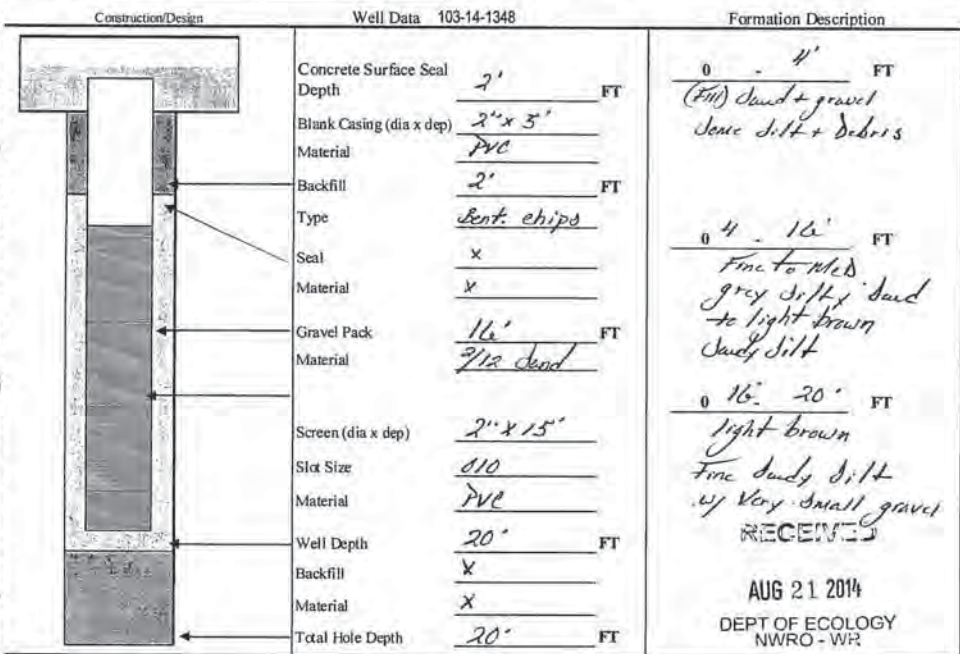 Construction/Design
Well Data 103-14-1348
Formation Description
Concrete Surface Seal
Depth 2' FT
Blank Casing (dia x dep) 2" x 5'
Material PVC
Backfill 2' FT
Type Bent. chips
Seal x
Material x
Gravel Pack 16' FT
Material 2/12 Sand
Screen (dia x dep) 2" x 15'
Slot Size 010
Material PVC
Well Depth 20' FT
Backfill x
Material x
Total Hole Depth 20' FT
0 - 4' FT
(Fill) Sand + gravel
Some Silt + Debris
0 4 - 16' FT
Fine to Med
grey Silty Sand
to light brown
Sandy Silt
0 16' - 20' FT
light brown
Fine Sandy Silt
w/ Very Small gravel
RECEIVED
AUG 21 2014
DEPT OF ECOLOGY
NWRO - WR